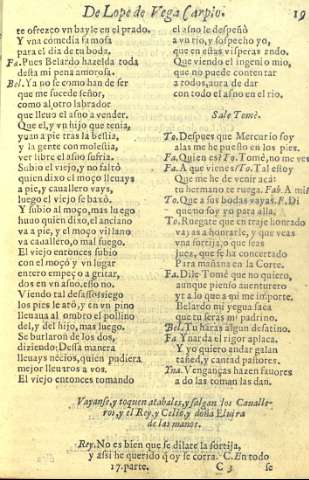 De Lope de Vega Carpio.
19
te ofrezco vn bayle en el prado.
Y vna comedia famosa
para el dia de tu boda,
Fa. Pues Belardo hazelda toda
desta mi pena amorosa.
Bel. Ya no se como han de ser
que me sucede señor,
como al otro labrador
que lleuo el asno a vender.
Que el, y vn hijo que tenia,
yuan a pie tras la bestia,
y la gente con molestia,
ver libre el asno sufria.
Subio el viejo, y no faltò
quien dixo el moço lleuays
a pie, y cauallero vays,
luego el viejo se baxò.
Y subio al moço, mas luego
huuo quien dixo, el anciano
va a pie, y el moço villano
va cauallero, o mal fuego.
El viejo entonces subio
con el moço y vn lugar
entero empeço a gritar,
dos en vn asno, esso no.
Viendo tal desassossiego
los pies le atò, y en vn pino
lleuaua al ombro el pollino
del, y del hijo, mas luego.
Se burlaron de los dos,
diziendo: Dessa manera
lleuays necios, quien pudiera
mejor lleuaros a vos.
El viejo entonces tomando
el asno le despeñò
a vn rio, y sospecho yo,
que en estas visperas ando.
Que viendo el ingenio mio,
que no puede contentar
a todos, aora de dar
con todo el asno en el rio.
Sale Tomè.
To. Despues que Mercurio soy
alas me he puesto en los pies.
Fa. Quien es? To. Tomè, no me ves
Fa. A que vienes? To. Tal estoy
Que me he de venir acà:
tu hermano te ruega. Fab. A mi?
To. Que a sus bodas vayas. F. Di
que no soy yo para alla.
To. Ruegate que en traje honrado
vayas a honrarle, y que veas
vna sortija, o que seas
Iuez, que se ha concertado
Para mañana en la Corte.
Fa. Dile Tomè que no quiero,
aunque pienso auenturero
yr a lo que a mi me importe.
Belardo mi yegua saca
que tu seras mi padrino.
Bel. Tu haras algun desatino.
Fa. Ynarda el rigor aplaca.
Y yo quiero andar galan
tañed, y cantad passores.
Yna. Venganças hazen fauores
a do las toman las dan.
Vayanse, y toquen atabales, y salgan los Caualle-
ros, y el Rey, y Celio, y doña Eluira
de las manos.
Rey. No es bien que se dilate la sortija,
y assi he querido q̃ oy se corra. C. En todo
17. parte. C 3 se